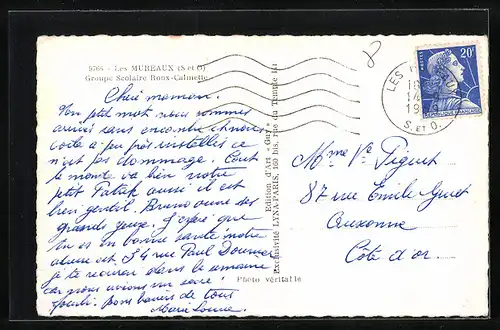 9766 - Les MUREAUX (S et O)
Groupe Scolaire Roux-Calmette
Chère maman.
Un petit mot nous sommes
arrivés sans encombre et nous
voilà à peu près installés ce
n'est pas dommage. Tout
le monde va bien notre
petit Patrik aussi il est
bien gentil. Bruno ouvre des
grands yeux. J'espère que
tu es en bonne santé notre
adresse est 34 rue Paul Doumer
je te recevrai dans la semaine
car nous avions un
Bons baisers de tous
Marie Louise
Edition d'Art "Guy"
Exclusivité LYNA-PARIS, 160 bis, rue du Temple
Photo véritable
8
LES
S. ET O.
POSTES
20F
REPUBLIQUE FRANÇAISE
Mme Ve Piguet
87 rue Emile Gruet
Auxonne
Côte d'or